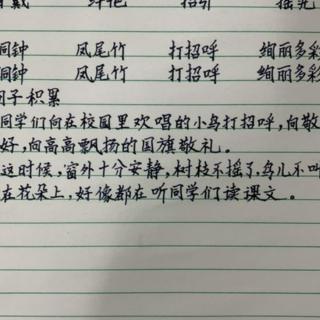 戴 绊 招引 摇晃
铜钟 凤尾竹 打招呼 绚丽多彩
铜钟 凤尾竹 打招呼 绚丽多彩
句子积累
同学们向在校园里欢唱的小鸟打招呼,向敬
好,向高高飘扬的国旗敬礼。
这时候,窗外十分安静,树枝不摇了,鸟儿不叫
在花朵上,好像都在听同学们读课文。